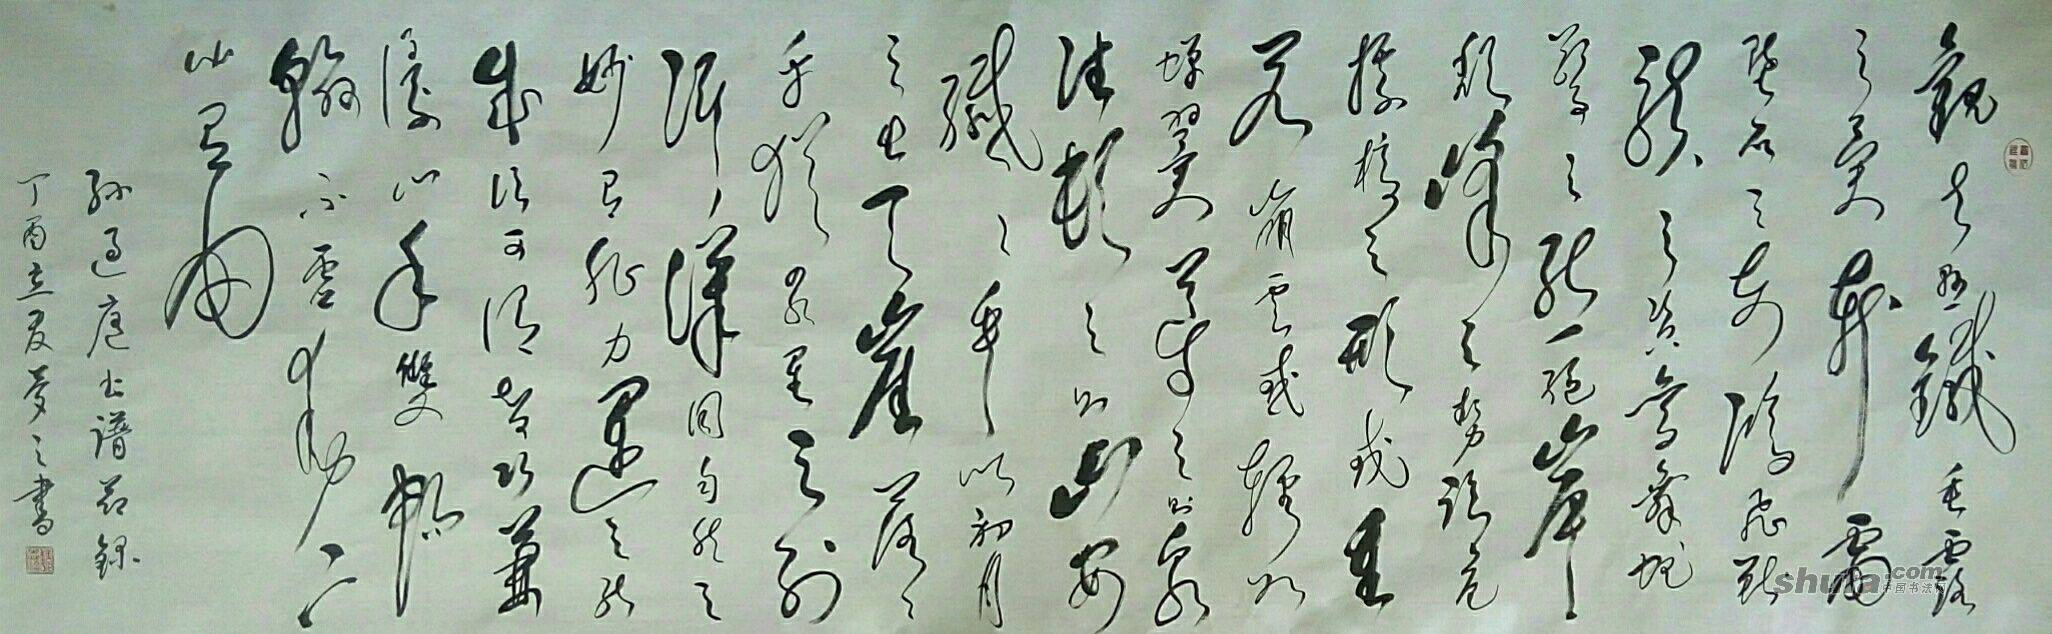 觀夫懸鍼垂露
之異奔雷
墜石之奇鴻飛獸
駭之資鸞舞蛇
驚之態絕岸
頹峰之勢臨危
據槁之形或重
若崩雲或輕如
蟬翼導之則泉
注頓之則山安
纖纖乎似初月
之出天崖落落
乎猶眾星之列
河漢同自然之
妙有非力運之能
成信可謂智巧兼
優心手雙暢
翰不虛動下
必有由
孫過庭書譜節錄
丁酉立夏夢之書
shufa.com
中国书法网